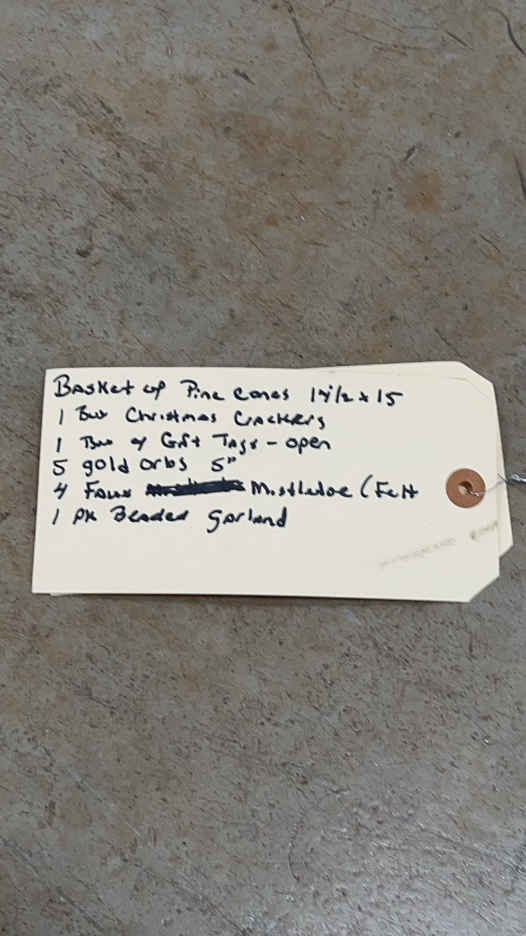 Basket of Pine Cones 14 1/2 x 15
1 Box Christmas Crackers
1 Box of Gift Tags - open
5 gold orbs 5"
4 Faux Mistletoe (Felt
1 pk Beaded Garland